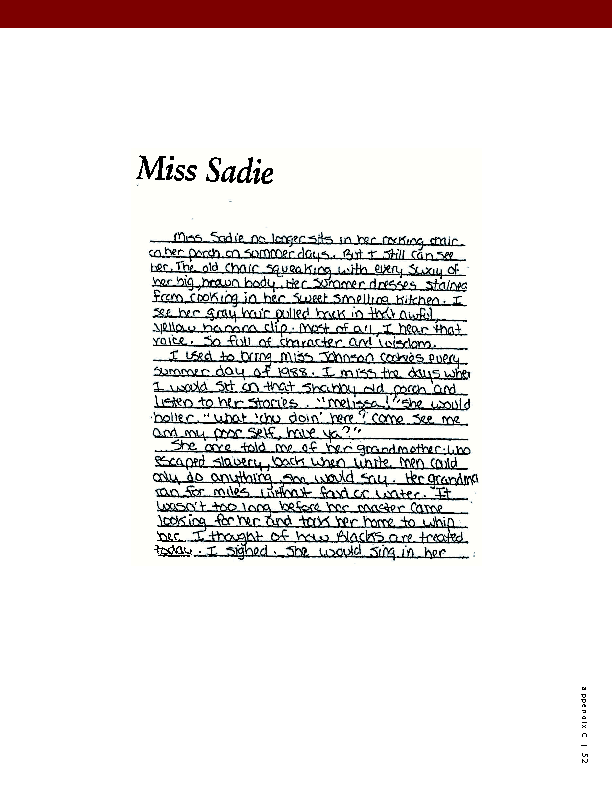 Miss Sadie
Miss Sadie no longer sits in her rocking chair
on her porch on summer days. But I still can see
her. The old chair squeaking with every sway of
her big, brown body. Her summer dresses stained
from cooking in her sweet smelling kitchen. I
see her gray hair pulled back in that awful,
yellow banana clip. Most of all, I hear that
voice. So full of character and wisdom.
I used to bring Miss Johnson cookies every
summer day of 1988. I miss the days when
I would sit on that shabby old porch and
listen to her stories. "Melissa!" she would
holler. "What 'chu doin' here? Come see me
and my poor self, have ya?"
She once told me of her grandmother who
escaped slavery, back when white men could
only do anything, she would say. Her grandma
ran for miles without food or water. It
wasn't too long before her master came
looking for her and took her home to whip
her. I thought of how Blacks are treated
today. I sighed. She would sing in her
appendix C | 52